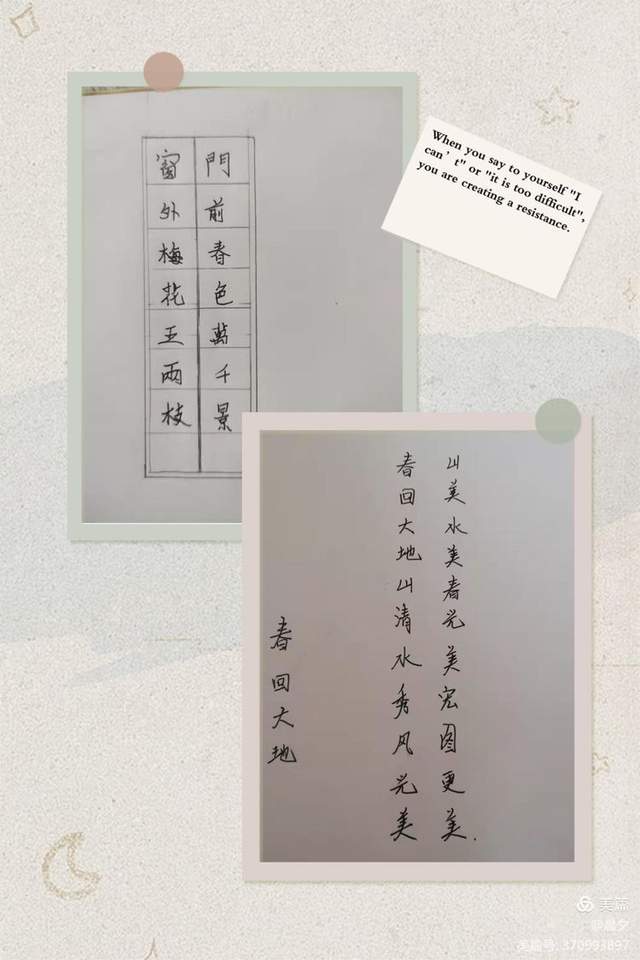 門前春色萬千景
窗外梅花五兩枝
When you say to yourself "I
can't" or "it is too difficult",
you are creating a resistance.
山美水美春光美宏图更美.
春回大地山清水秀风光美
春回大地
美篇
美篇号: 370993897